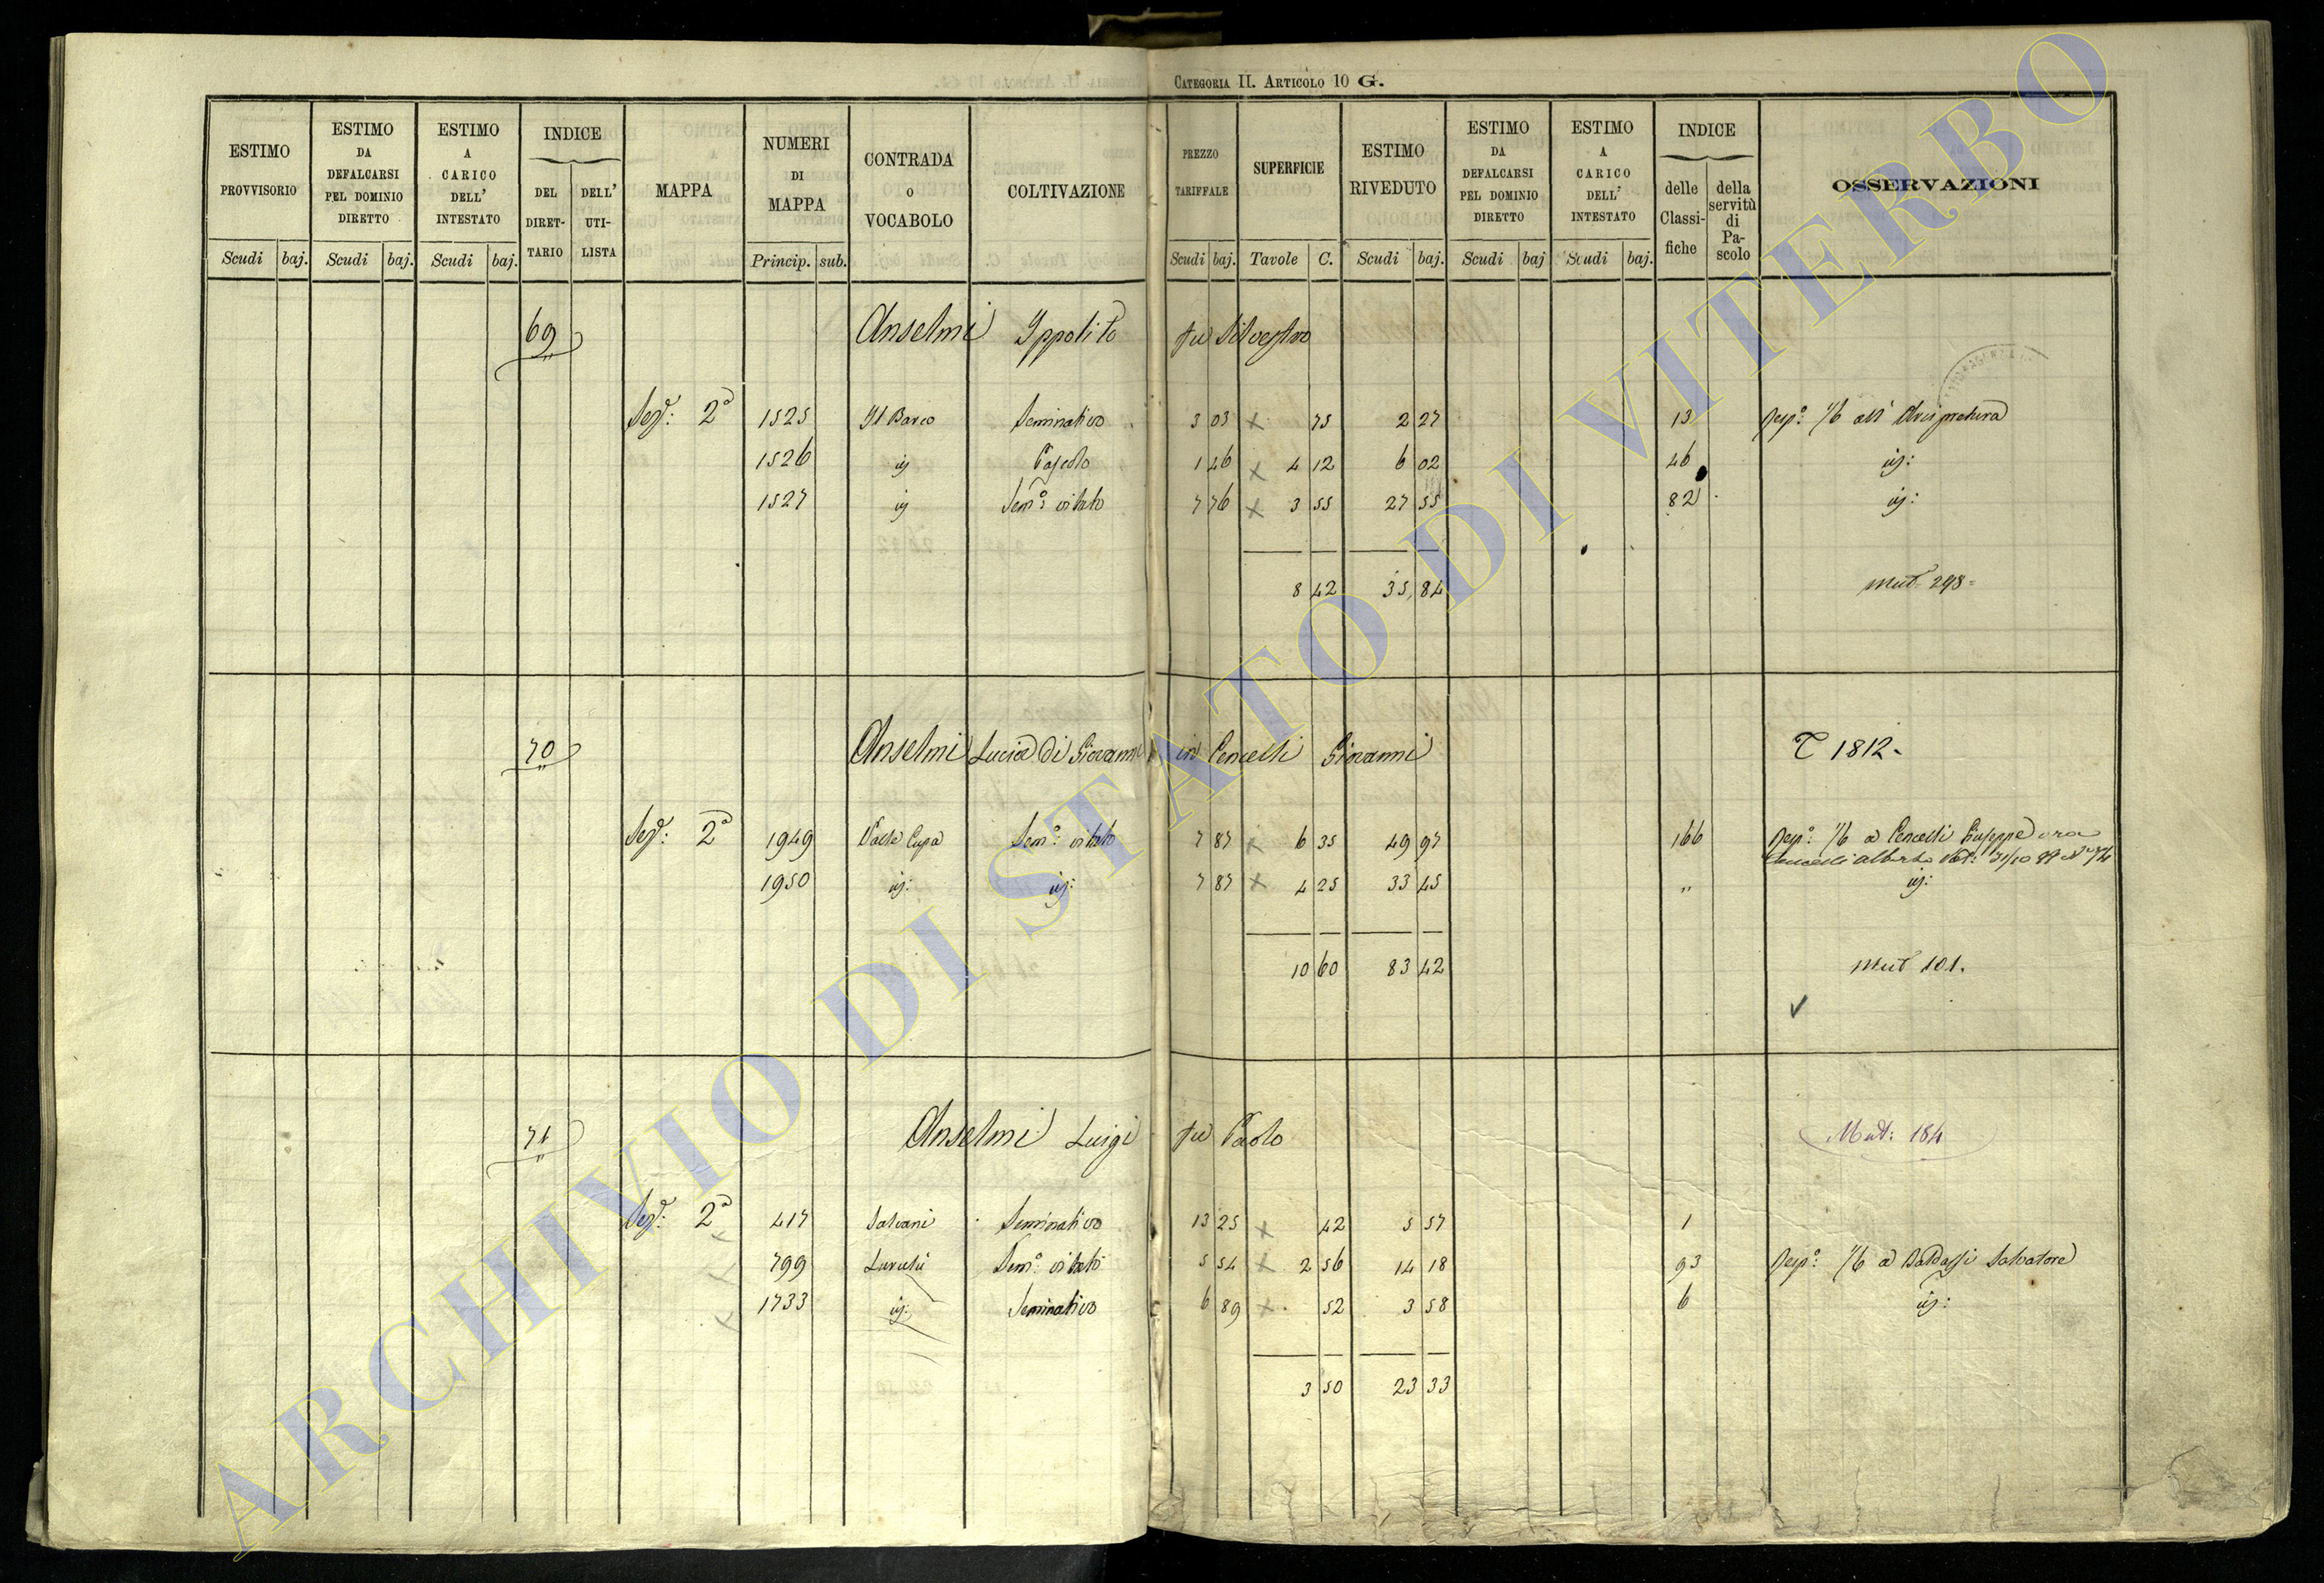 CATEGORIA II. ARTICOLO 10 G.
ESTIMO PROVVISORIO Scudi baj.
ESTIMO DA DEFALCARSI PEL DOMINIO DIRETTO Scudi baj.
ESTIMO A CARICO DELL' INTESTATO Scudi baj.
INDICE DEL DIRETTARIO DELL' UTILISTA
MAPPA
NUMERI DI MAPPA Princip. sub.
CONTRADA O VOCABOLO
COLTIVAZIONE
PREZZO TARIFFALE Scudi baj.
SUPERFICIE Tavole C.
ESTIMO RIVEDUTO Scudi baj.
ESTIMO DA DEFALCARSI PEL DOMINIO DIRETTO Scudi baj
ESTIMO A CARICO DELL' INTESTATO Scudi baj.
INDICE delle Classifiche della servitù di Pascolo
OSSERVAZIONI
69 Anselmi Ippolito fu Silvestro
Sez: 2a 1525 Il Barco Seminativo 3 03 x 75 2 27 13 Risp: 1/6 all' Arcipretura
1526 id Pascolo 1 46 x 4 12 6 02 46 id:
1527 id Sem: vitato 7 76 x 3 55 27 55 82 id:
8 42 35, 84 mut. 298
70 Anselmi Lucia di Giovanni in Cencelli Giovanni T 1812
Sez: 2a 1949 Valle Cupa Sem: vitato 7 87 x 6 35 49 97 166 Risp: 1/6 a Cencelli Giuseppe ora
Cencelli Alberto
1950 id: id: 7 87 x 4 25 33 45 " id:
10 60 83 42 mut 101.
71 Anselmi Luigi fu Paolo Mut: 184
Sez: 2a 417 Salvani Seminativo 13 25 x 42 5 57 1
799 Sem: vitato 5 54 x 2 56 14 18 93 Risp: 1/6 a Baldassi Salvatore
1733 id: Seminativo 6 89 x 52 3 58 6 id:
3 50 23 33
ARCHIVIO DI STATO DI VITERBO